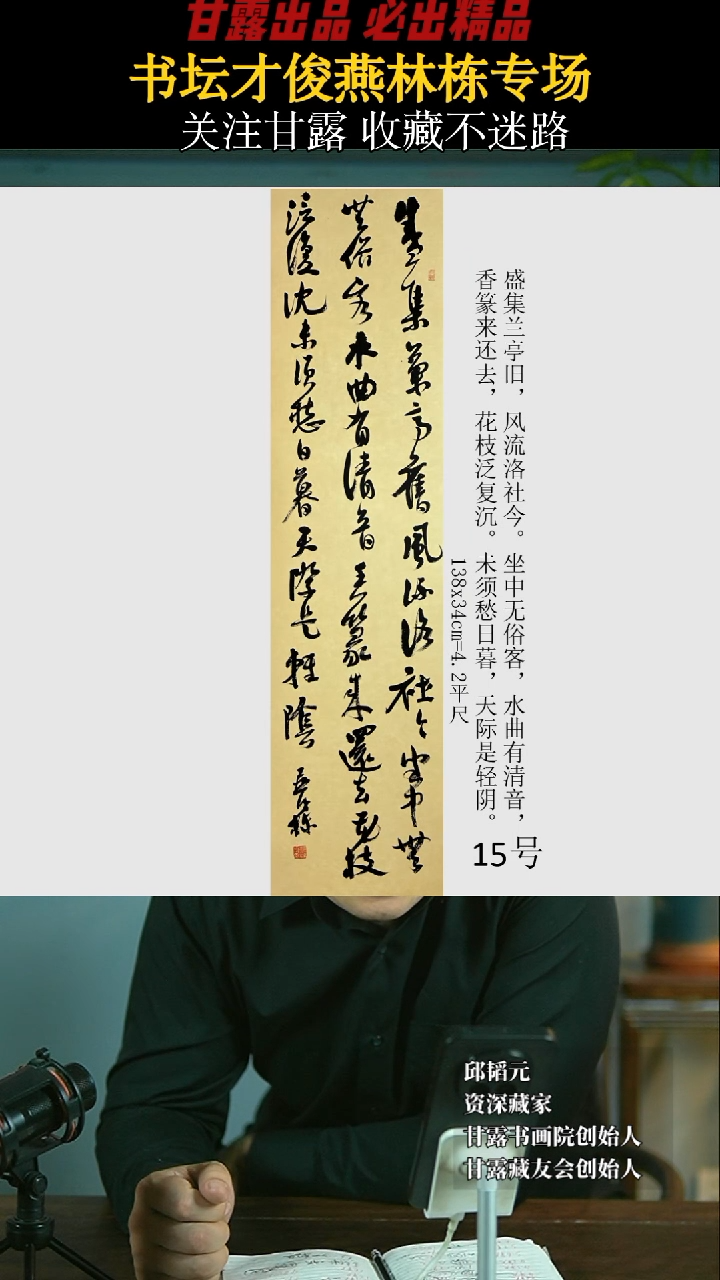 甘露出品 必出精品
书坛才俊燕林栋专场
关注甘露 收藏不迷路
盛集兰亭旧，风流洛社今。坐中无俗客，水曲有清音，
香篆来还去，花枝泛复沉。未须愁日暮，天际是轻阴。
138x34cm=4.2平尺
15号
盛集蘭亭舊風流洛社今坐中無
無俗客水曲有清音香篆來還去花枝
泛復沈未須愁日暮天際是輕陰
邱韬元
资深藏家
甘露书画院创始人
甘露藏友会创始人